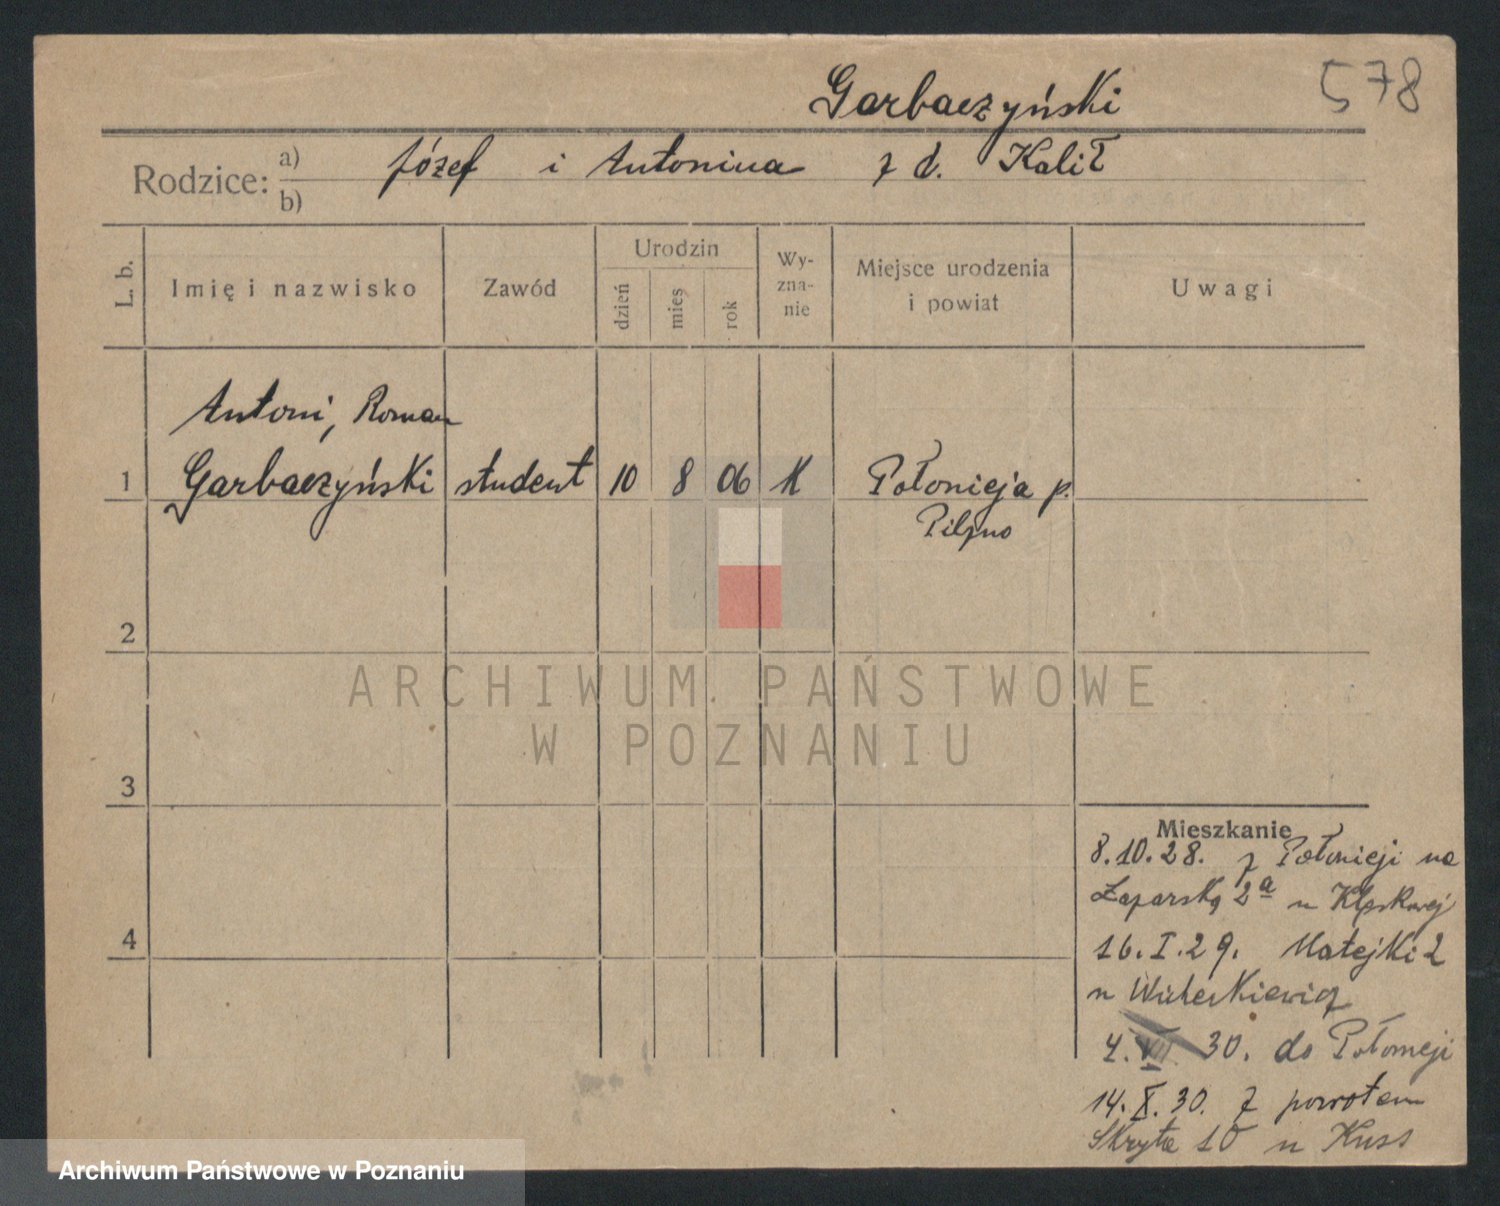 578
Garbaczyński
Rodzice: a) b)
Józef i Antonina z d. Kalit
L. b.
Imię i nazwisko
Zawód
Urodzin
dzień
mies
rok
Wy-
zna-
nie
Miejsce urodzenia
i powiat
Uwagi
Antoni, Roman
1 Garbaczyński student 10 8 06 K Połomieja p.
Pilzno
2
3
4
ARCHIWUM PAŃSTWOWE
W POZNANIU
Mieszkanie
8.10.28. z Połomieji na
2a u
16.I.29. Matejki 2
u
4.VII 30. do Połomeji
14.X.30. z powrotem
Skryta 10 u Kuss
Archiwum Państwowe w Poznaniu